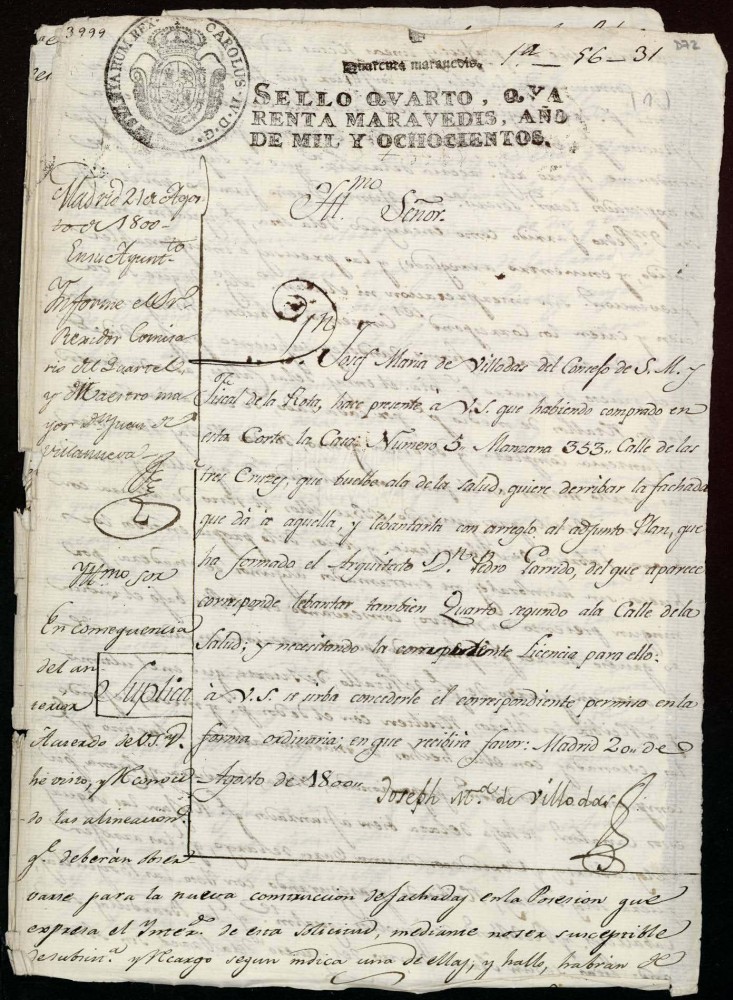 3999
HISPANIARUM REX. CAROLUS IV D. G.
Quarenta maravedis.
1ª - 56 - 31
D72
(1)
SELLO QVARTO, QVA
RENTA MARAVEDIS, AÑO
DE MIL Y OCHOCIENTOS.
Yll.mo Señor.
Madrid 21 de Agos
to de 1800
En su Ayunt.to
Informe el Sr.
Rexidor Comisa
rio del Quartel,
y el Maestro ma
yor Dn. Juan de
Villanueva
Dn. Josef Maria de Villodas del Consejo de S. M. y
Fiscal de la Rota, hace presente à V.S. que habiendo comprado en
esta Corte la Casa Número 5. Manzana 353,, Calle de las
tres Cruzes, que buelbe a la de la Salud, quiere derribar la fachada
que dà à aquella, y lebantarla con arreglo al adjunto Plan, que
ha formado el Arquitecto Dn. Pedro Garrido, del que aparece
corresponde lebantar tambien Quarto segundo a la Calle de la
Salud; y necesitando la correspondiente Licencia para ello:
Suplica
à V.S. se sirba concederle el correspondiente permiso en la
forma ordinaria; en que recibirà favor: Madrid 20,, de
Agosto de 1800,,
Joseph M.ª de Villodas
Yll.mo Sor
En consequencia
del an
terior
Acuerdo de V.S.Y.
he visto, y reconoci
do las alineacion.s
q.e deberàn obser
varse para la nueva construccion de fachadas en la Posesion que
expresa el Inter.do de esta solicitud, mediante no ser susceptible
de subsis.a y Recargo segun indica una de ellas, y hallo, habràn de